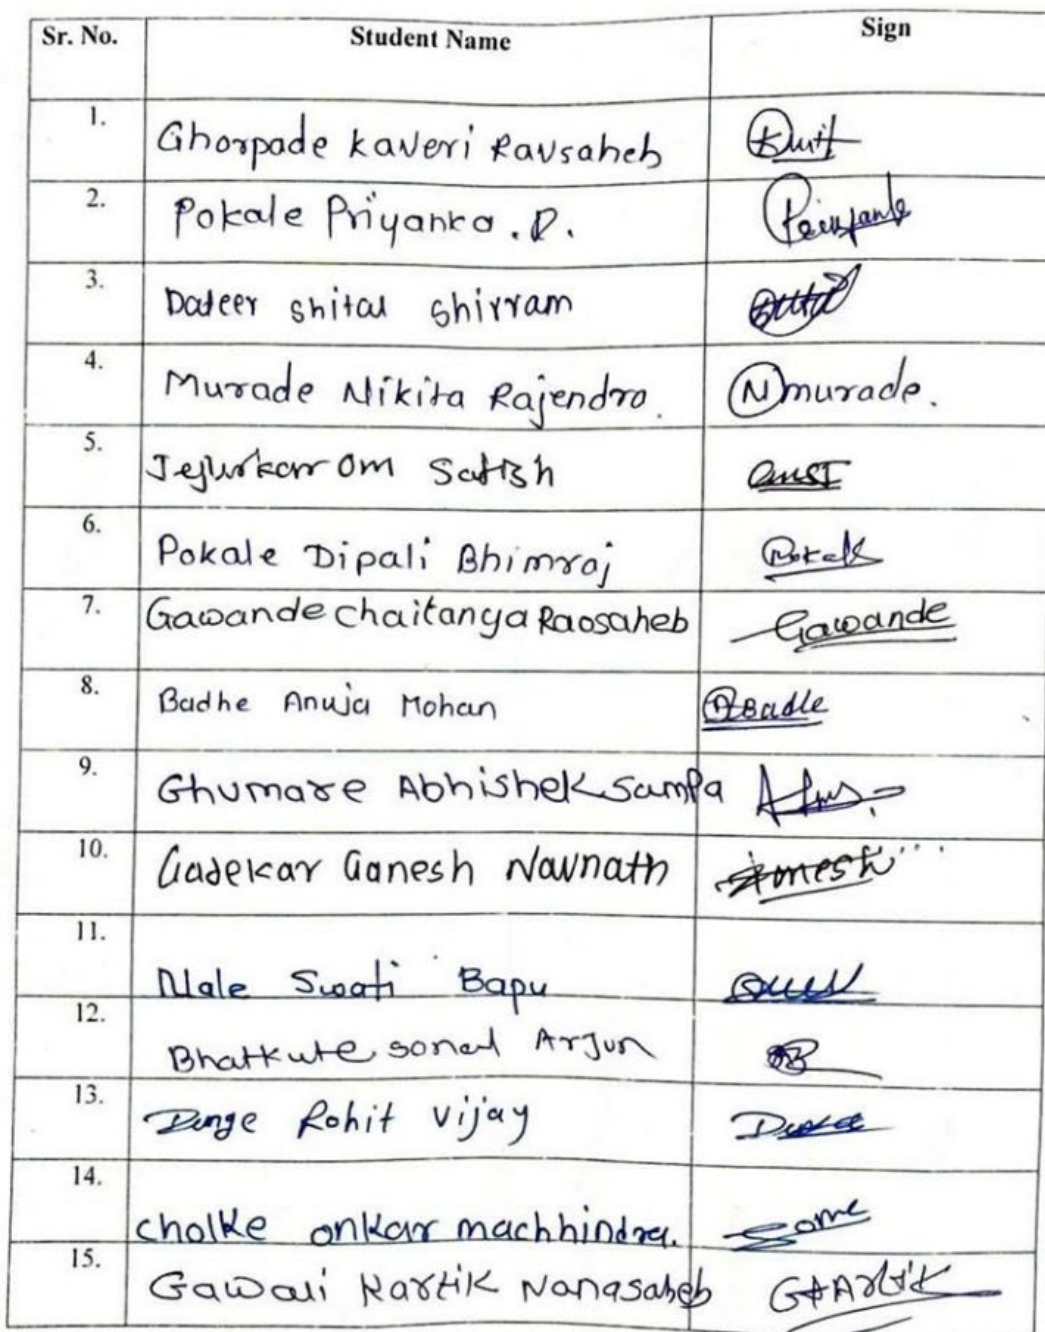 Sr. No. Student Name Sign
1. Ghorpade Kaveri Ravsaheb
2. Pokale Priyanka . D.
3. Dateer Shital Shivram
4. Murade Nikita Rajendra. Nmurade.
5. Jejurkar Om Satish
6. Pokale Dipali Bhimraj
7. Gawande Chaitanya Raosaheb Gawande
8. Badhe Anuja Mohan ABadle
9. Ghumare Abhishek Sampa
10. Gadekar Ganesh Navnath
11. Nale Swati Bapu
12. Bhatkute Sonal Arjun
13. Dinge Rohit Vijay
14. Cholke Onkar machhindra.
15. Gawali Kartik Nanasaheb GKArtik